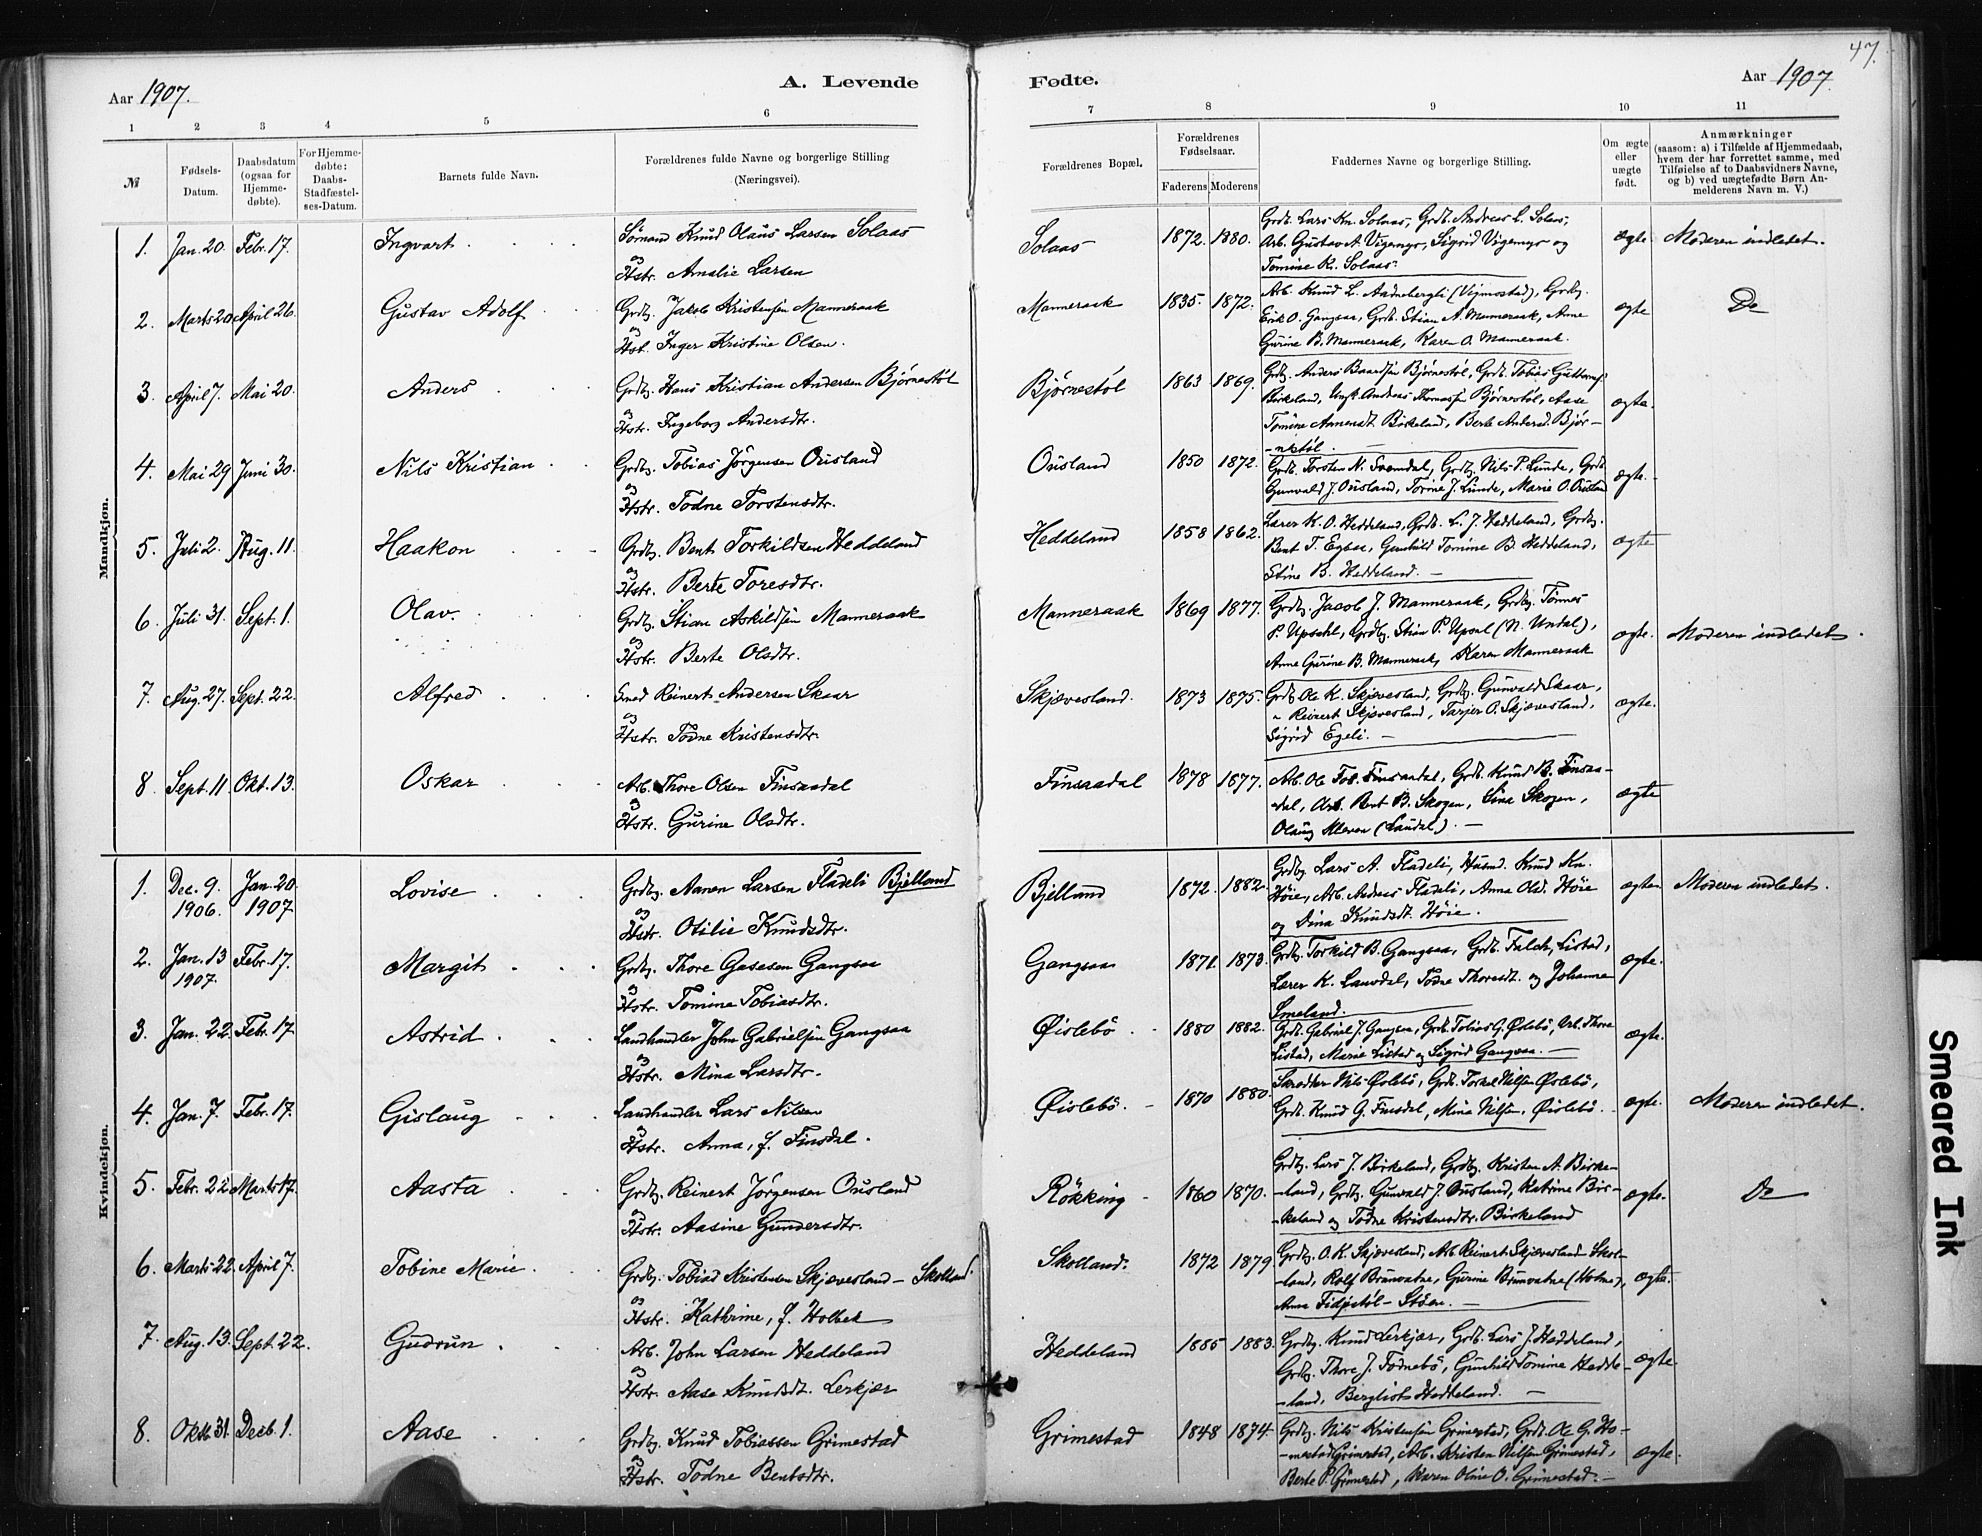 47.
Aar 1907.
A. Levende
Fødte.
Aar 1907.
1 2 3 4 5 6 7 8 9 10 11
№
Fødsels-
Datum.
Daabsdatum
(ogsaa for
Hjemme-
døbte).
For Hjemme-
døbte:
Daabs-
Stadfæstel-
ses-Datum.
Barnets fulde Navn.
Forældrenes fulde Navne og borgerlige Stilling
(Næringsvei).
Forældrenes Bopæl.
Forældrenes
Fødselsaar.
Faderens Moderens
Faddernes Navne og borgerlige Stilling.
Om ægte
eller
uægte
født.
Anmærkninger
(saasom: a) i Tilfælde af Hjemmedaab,
hvem der har forrettet samme, med
Tilføielse af to Daabsvidners Navne,
og b) ved uægtefødte Børn An-
melderens Navn m. V.)
Mandkjøn.
1. Jan. 20. Febr. 17. Ingvart
Sømand Knud Olaus Larsen Solaas
og
Hstr. Amalie Larsen
Solaas 1872. 1880.
Grdb. Lars Kn. Solaas, Grdb. Andreas L. Solaas,
Arb. Gustav A. Vigemyr, Sigrid Vigemyr og
Tomine K. Solaas.
ægte Moderen indledet.
2. Marts 20 April 26. Gustav Adolf
Grdbg. Jakob Kristensen Manneraak
og
Hst. Inger Kristine Olsen.
Manneraak 1835. 1872.
Arb. Knud L. (Vigmostad), Grdbg.
Erik O. Gangsaa, Grdb. Stian A. Manneraak, Anne
Gurine B. Manneraak, Karen O. Manneraak.
ægte Do
3. April 7. Mai 20. Anders
Grdbg. Hans Kristian Andersen Bjørnestøl
og
Hstr. Ingeborg Andersdtr.
Bjørnestøl 1863 1869.
Grdbg. Anders Baardsen Bjørnestøl, Grdb. Tobias
Birkeland, Ungk. Andreas Thomassen Bjørnestøl, Aase
Tomine Birkeland, Berte Andersd. Bjør-
-nestøl.
ægte.
4. Mai 29 Juni 30. Nils Kristian
Grdbg. Tobias Jørgensen Ousland
og
Hstr. Todne Torstensdtr.
Ousland 1850 1872.
Grdb. Torsten N. Svemdal, Grdbg. Nils P. Lunde, Grdb.
Gunvald J. Ousland, Torine J. Lunde, Marie O. Ousland
ægte.
5. Juli 2. Aug. 11. Haakon
Grdbg. Bent Torkildsen Heddeland
og
Hstr. Berte Toresdtr.
Heddeland 1858 1862.
Lærer K. O. Heddeland, Grdb. L. J. Heddeland, Grdbg.
Bent T. Egeaa, Gunhild Tomine B. Heddeland,
Stine B. Heddeland.
ægte
6. Juli 31. Sept. 1. Olav.
Grdbg. Stian Askildsen Manneraak
og
Hstr. Berte Olsdtr.
Manneraak 1869 1877.
Grdbg. Jacob J. Manneraak, Grdbg. Tønnes
P. Upsahl, Grdbg. Stian P. Upsal (N. Undal),
Anne Gurine B. Manneraak, Karen Manneraak
ægte. Moderen indledet.
7. Aug. 27. Sept. 22. Alfred
Smed Reinert Andersen Skaar
og
Hstr. Todne Kristensdtr.
Skjævesland. 1873 1875.
Grdb. Ole K. Skjævesland, Grdbg. Gunvald Skaar,
" Reinert Skjævesland, Tarjer O. Skjævesland,
Sigrid Egeli.
ægte.
8. Sept. 11. Okt. 13. Oskar
Arb. Thore Olsen Finsaadal
og
Hstr. Gurine Olsdtr.
Finsaadal 1878 1877.
Arb. Ole Tob. Finsaadal, Grdb. Knud B. Finsaa-
-dal, Arb. Bent B. Skogen, Sina Skogen,
Olaug Kleven (Laudal).
ægte
Kvindekjøn.
1. Dec. 9. 1906. Jan. 20. 1907. Lovise
Grdbg. Aanen Larsen Fladeli Bjelland
og
Hstr. Otilie Knudsdtr.
Bjelland 1872. 1882.
Grdbg. Lars A. Fladeli, Husmd. Knud Kn.
Høie, Arb. Andreas Fladeli, Anna Olsd. Høie
og Dina Knudsdt. Høie.
ægte. Moderen indledet.
2. Jan. 13 1907. Febr. 17. Margit
Grdbg. Thore Gasesen Gangsaa
og
Hstr. Tomine Tobiasdtr.
Gangsaa 1871. 1873.
Grdbg. Torkild B. Gangsaa, Grdb. Falch, Listad,
Lærer K. Lauvdal, Todne Thorsdt. og Johanne
Smeland.
ægte.
3. Jan. 22. Febr. 17 Astrid
Landhandler John Gabrielsen Gangsaa
og
Hstr. Mina Larsdtr.
Øislebö 1880 1882.
Grdb. Gabriel J. Gangsaa, Grdb. Tobias G. Øslebö, Arb. Thore
Listad, Marie Listad og Sigrid Gangsaa.
ægte.
4. Jan. 7. Febr. 17 Gislaug
Landhandler Lars Nilsen
og
Hstr. Anna, f. Finsdal.
Øislebö. 1870 1880.
Skrædder Nils Øslebö, Grdb. Torkel Nilsen Øslebö,
Grdb. Knud G. Finsdal, Mina Nilsen, Øislebö.
ægte. Moderen indledet.
5. Febr. 22 Marts 17. Aasta
Grdbg. Reinert Jörgensen Ousland
og
Hstr. Aasine Gundersdtr.
Røkking 1860 1870.
Grdbg. Lars J. Birkeland, Grdbg. Kristen A. Birke-
-land, Grdbg. Gunvald J. Ousland, Katrine Bir-
-keland og Todne Kristensdtr. Birkeland
ægte. Do
6. Marts 22. April 7. Tobine Marie
Grdbg. Tobias Kristensen Skjævesland - Skolland.
og
Hstr. Kathrine, f. Holbek
Skolland. 1872 1879
Grdbg. O. K. Skjævesland, Arb. Reinert Skjævesland Skol-
-land, Rolf Brunvatne, Gurine Brunvatne (Holme),
Anna Fidjestøl - Støen.
ægte.
7. Aug. 13. Sept. 22. Gudrun
Arb. John Larsen Heddeland
og
Hstr. Aase Knudsdt. Lerkjær
Heddeland 1885 1883.
Grdbg. Knud Lerkjær, Grdb. Lars J. Heddeland,
Grdbg. Thore J. Fodnebö, Gunhild Tomine Hedde-
-land, Bergliot Heddeland.
ægte.
8. Oktb 31. Decb. 1. Aase
Grdbg. Knud Tobiassen Grimestad
og
Hstr. Todne Bentsdtr.
Grimestad 1848 1874.
Grdbg. Nils Kristensen Grimestad, Grdb. Ole G. Ho-
-mestad Grimestad, Arb. Kristen Nilsen Grimestad,
Berte P. Grimestad, Karen Oline O. Grimestad.
ægte.
Smeared Ink